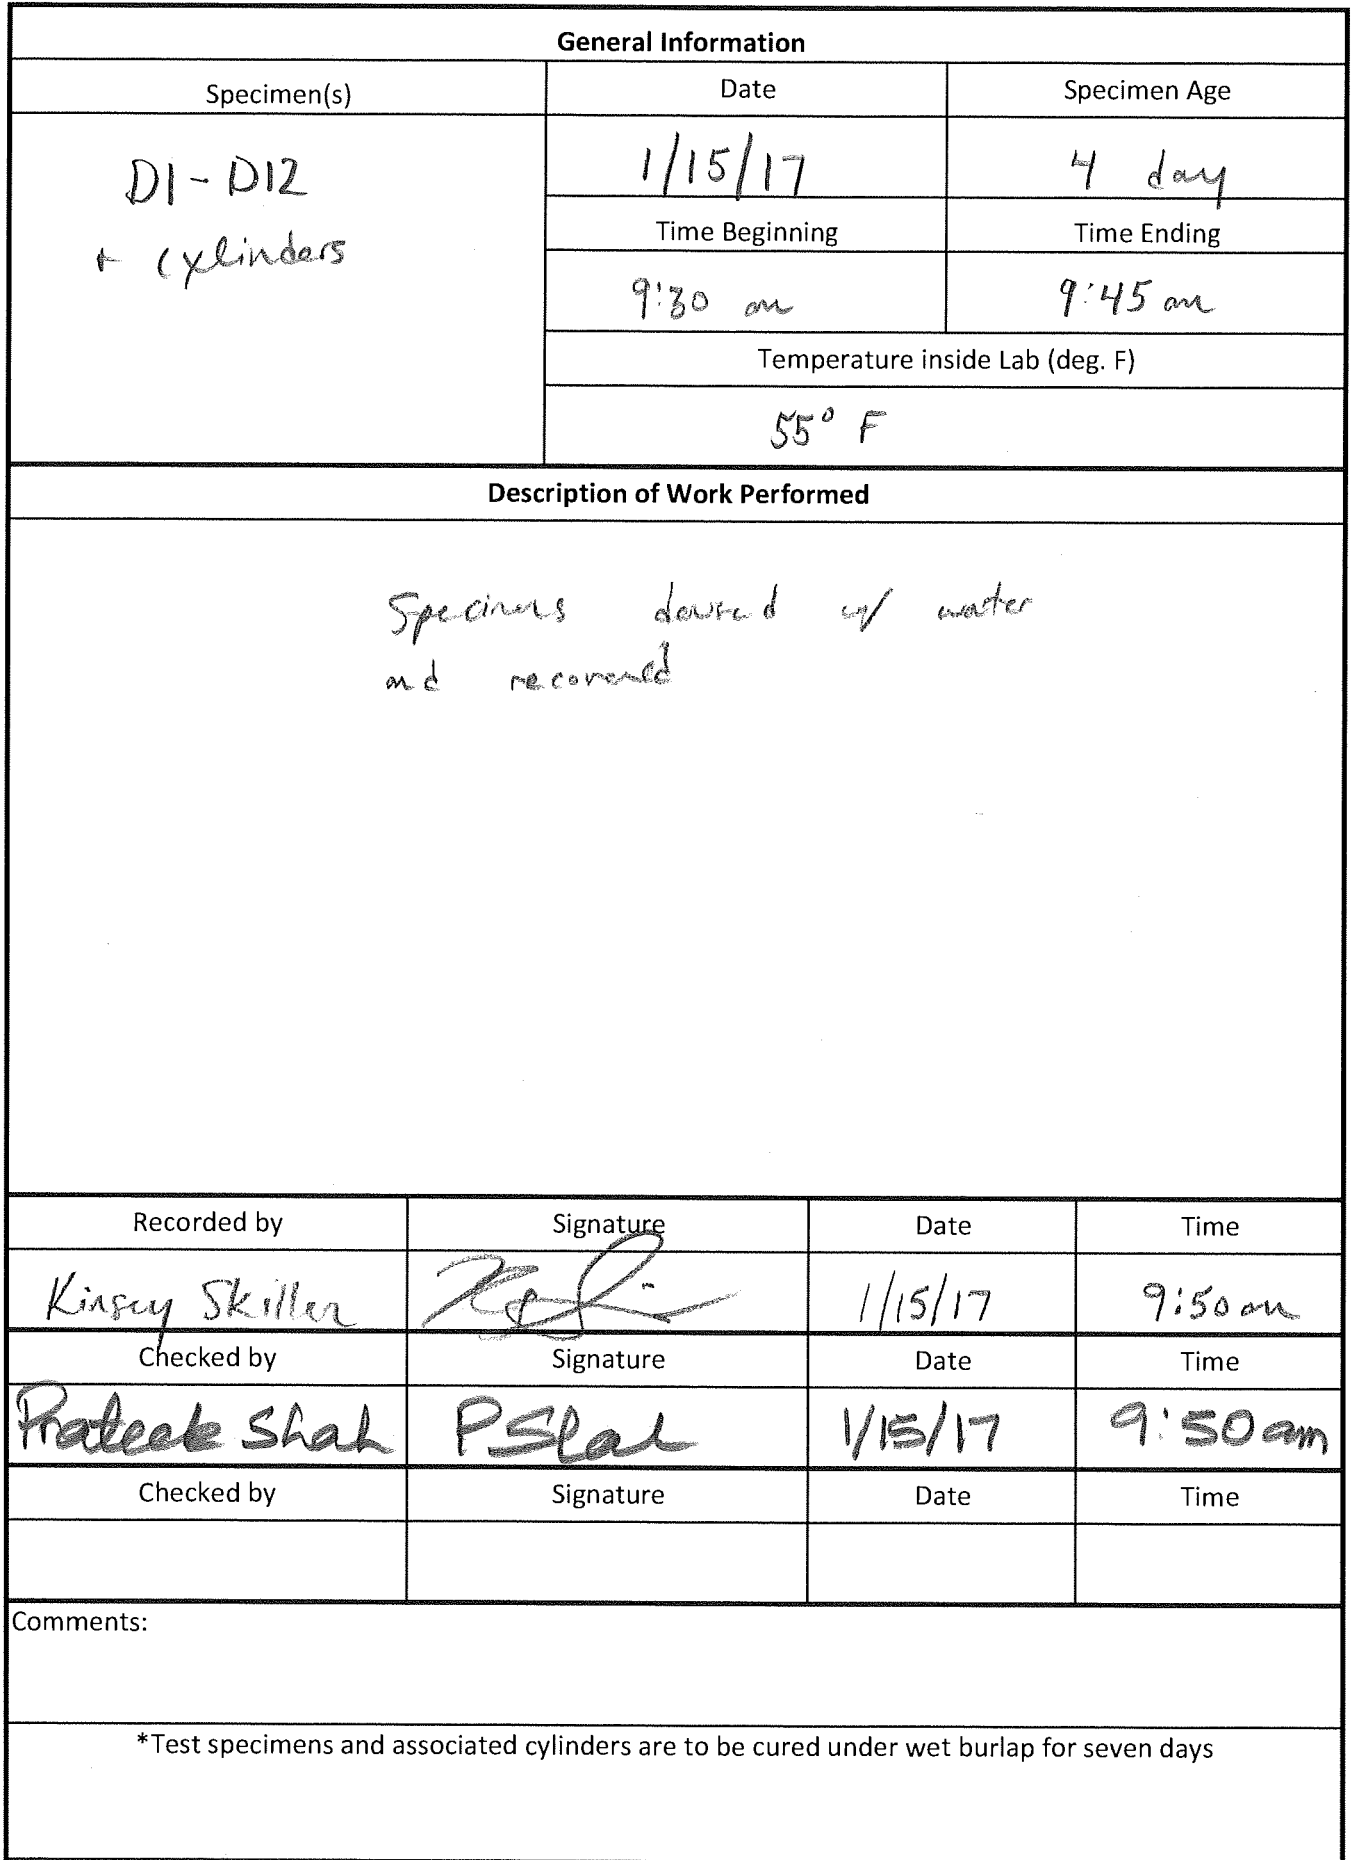 General Information
Specimen(s) Date Specimen Age
D1 - D12 1/15/17 4 day
+ cylinders
Time Beginning Time Ending
9:30 am 9:45 am
Temperature inside Lab (deg. F)
55° F
Description of Work Performed
Specimens doused w/ water
and recovered
Recorded by Signature Date Time
Kinsey Skillen 1/15/17 9:50 am
Checked by Signature Date Time
Prateek Shah P Shah 1/15/17 9:50 am
Checked by Signature Date Time
Comments:
*Test specimens and associated cylinders are to be cured under wet burlap for seven days